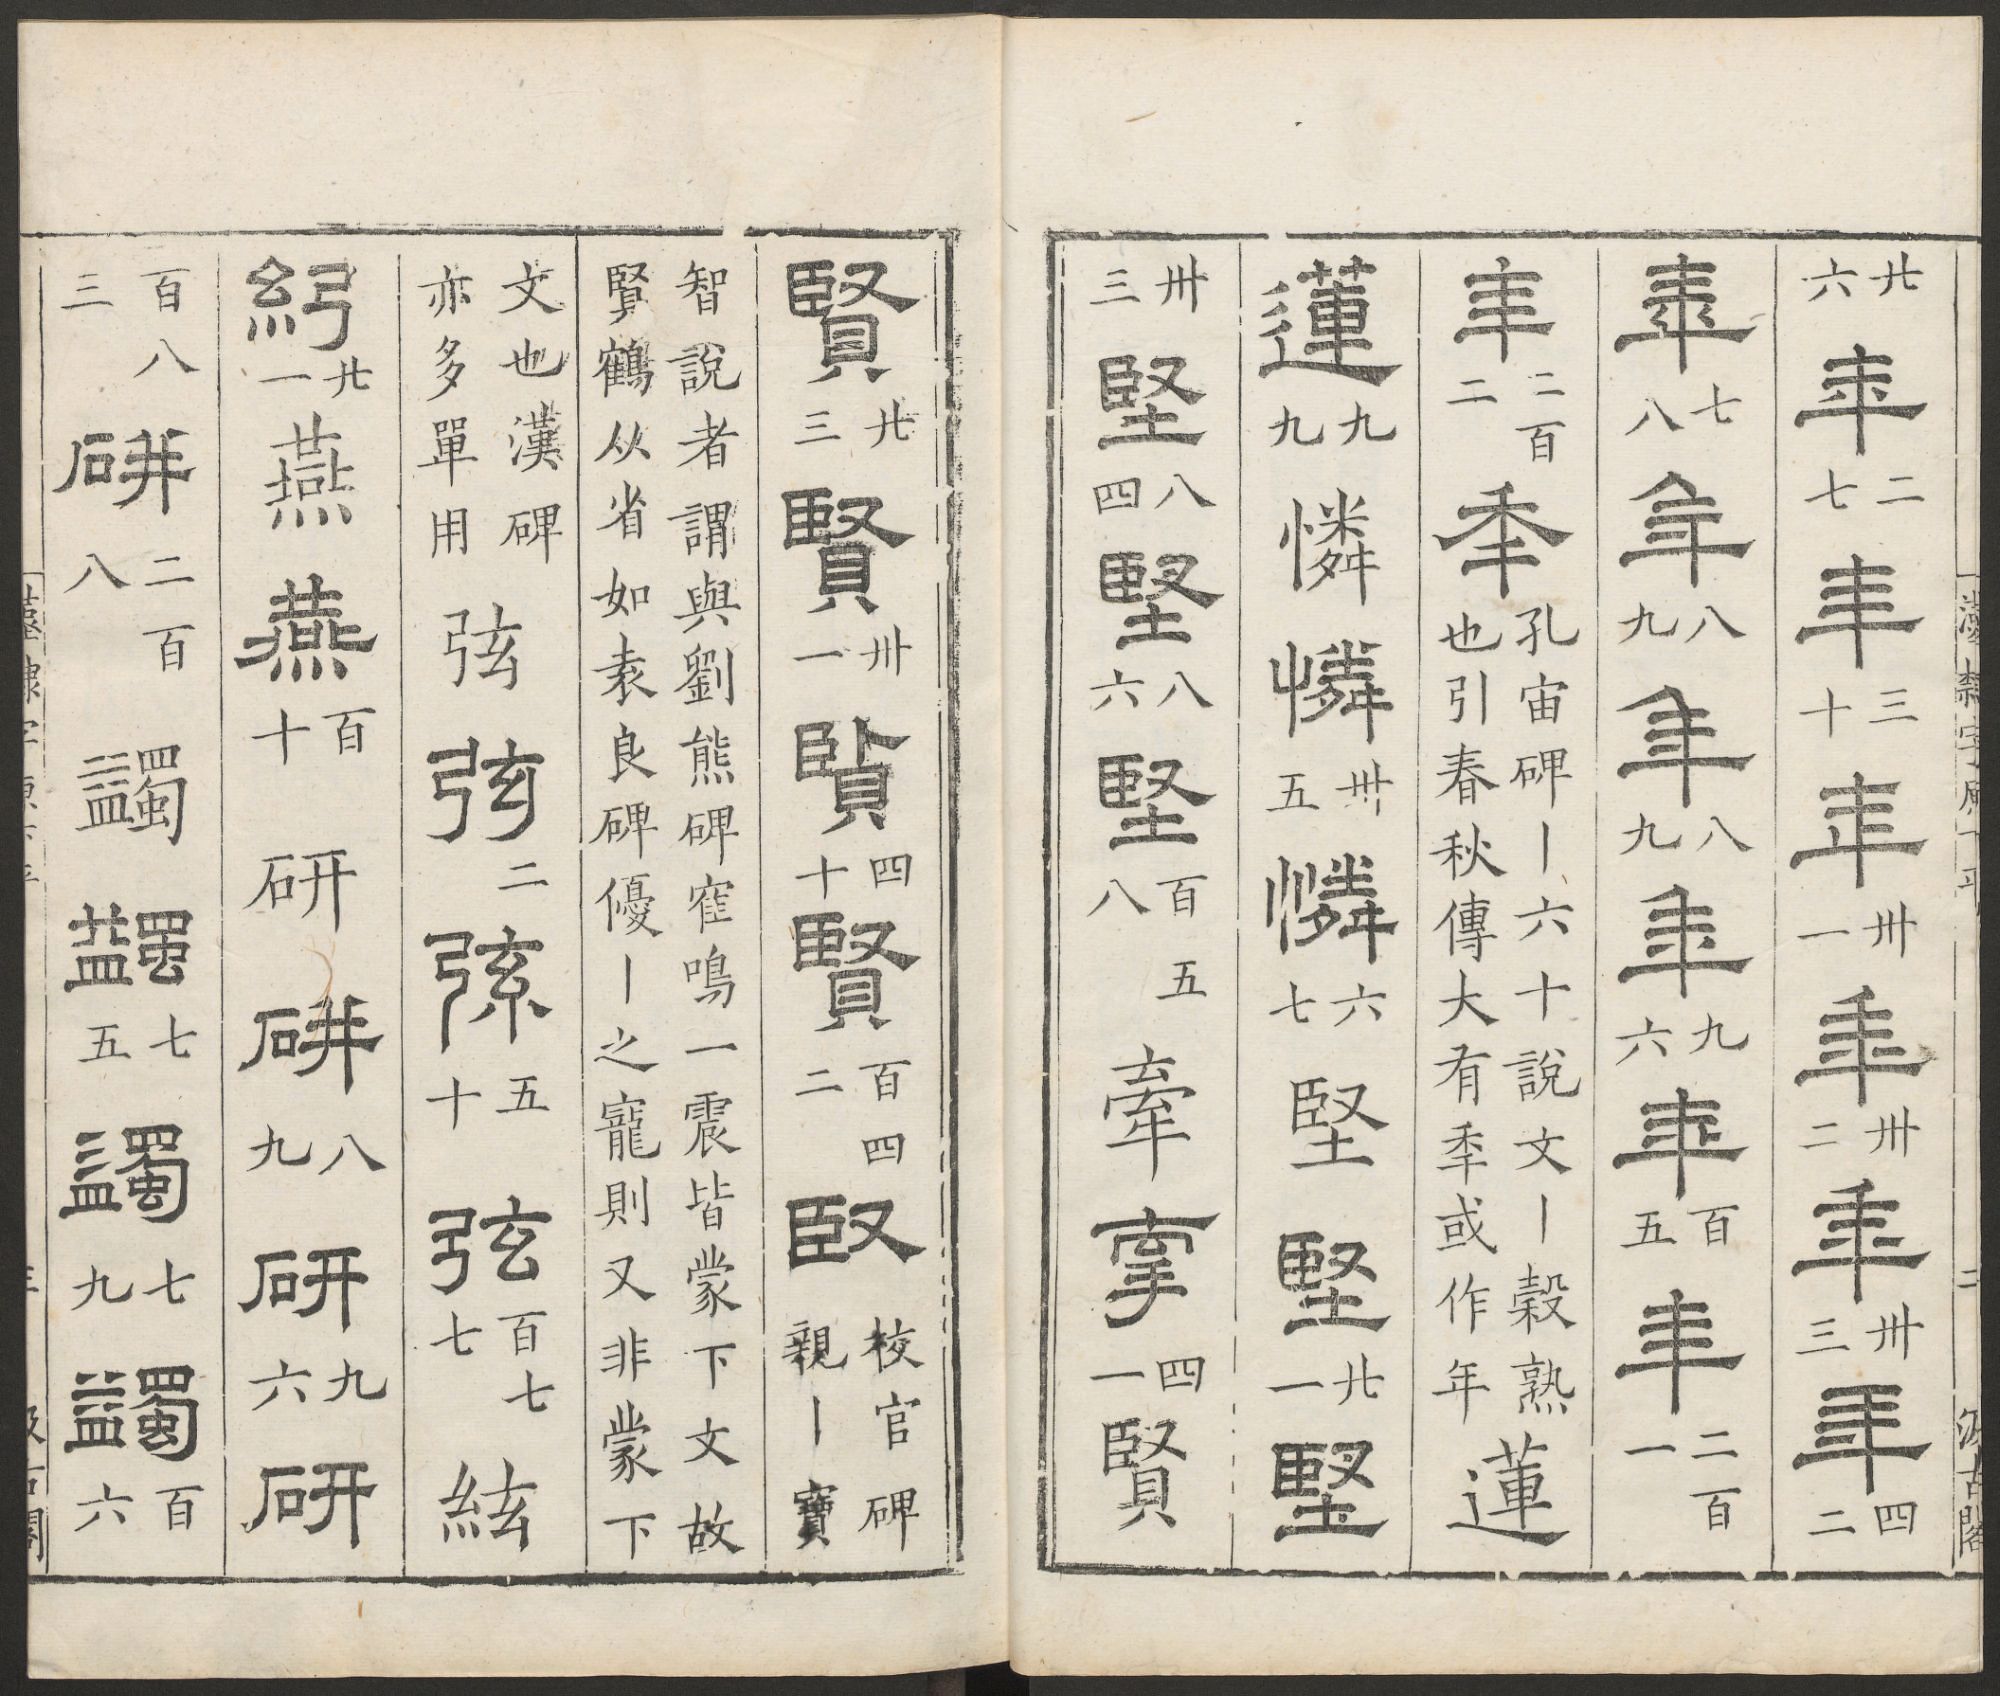 廿六 年 二七 年 三十 年 卅一 年 卅二 年 卅三 年 四二
年 七八 年 八九 年 八九 年 九六 年 百五 年 二百一
年 二百二 秊 孔宙碑丨六十說文丨穀熟也引春秋傳大有秊或作年 蓮
蓮 九九 憐 憐 卅五 憐 六七 堅 堅 廿一 堅
卅三 堅 八四 堅 八六 堅 百五八 牽 牽 四一 賢
賢 廿三 賢 卅一 賢 四十 賢 百四二 臤 校官碑親丨寶
智說者謂與劉熊碑寉鳴一震皆蒙下文故
賢鶴从省如袁良碑優丨之寵則又非蒙下
文也漢碑亦多單用 弦 弦 二 弦 五十 弦 百七七 絃
絃 廿一 燕 燕 百十 研 研 八九 研 九六 研
百八三 研 二百八 蠲 蠲 七五 蠲 七九 蠲 百六